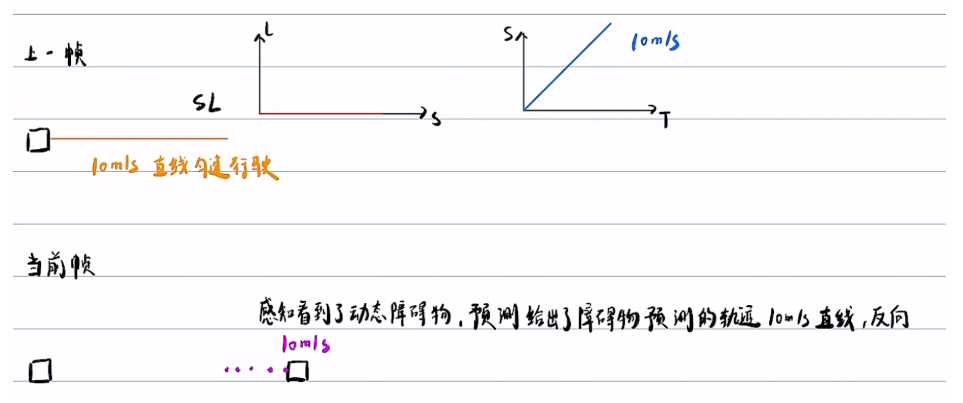 上一帧
L
S
10m/s
SL
S
T
10m/s 直线匀速行驶
当前帧
感知看到了动态障碍物，预测给出了障碍物预测的轨迹 10m/s 直线，反向
10m/s